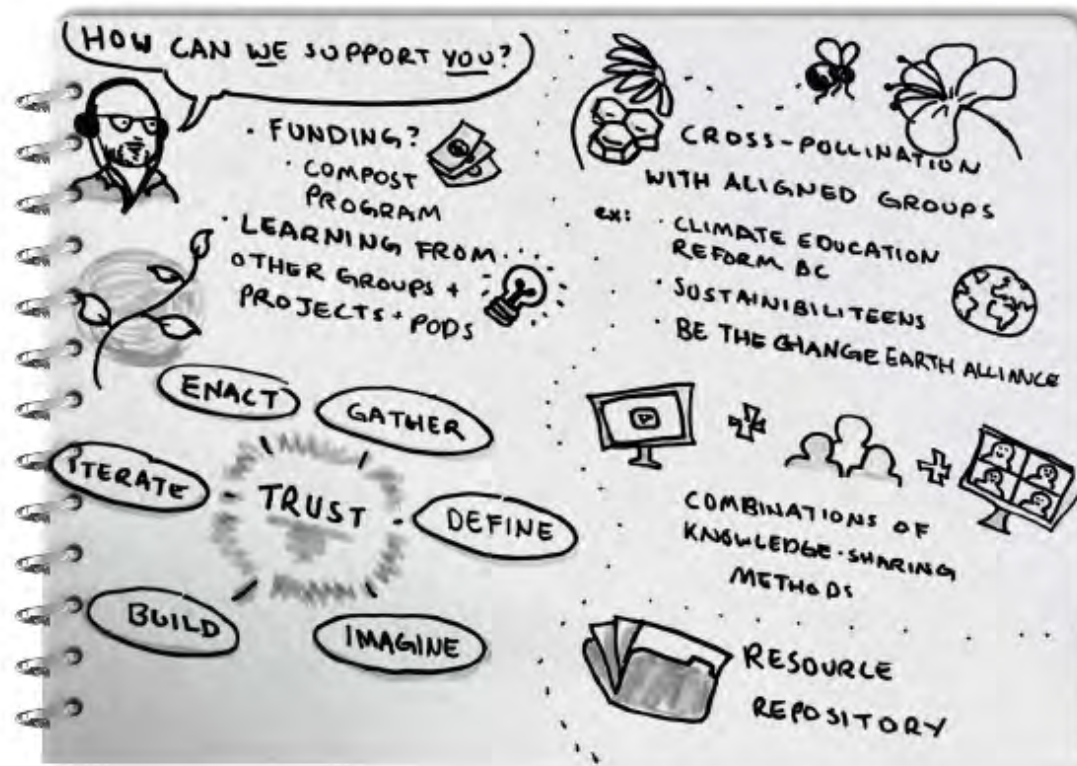 HOW CAN WE SUPPORT YOU?
· FUNDING?
· COMPOST
PROGRAM
· LEARNING FROM
OTHER GROUPS +
PROJECTS + PODS
ENACT
GATHER
ITERATE
TRUST
DEFINE
BUILD
IMAGINE
CROSS-POLLINATION
WITH ALIGNED GROUPS
ex: · CLIMATE EDUCATION
REFORM BC
· SUSTAINIBILITEENS
· BE THE CHANGE EARTH ALLIANCE
COMBINATIONS OF
KNOWLEDGE-SHARING
METHODS
RESOURCE
REPOSITORY